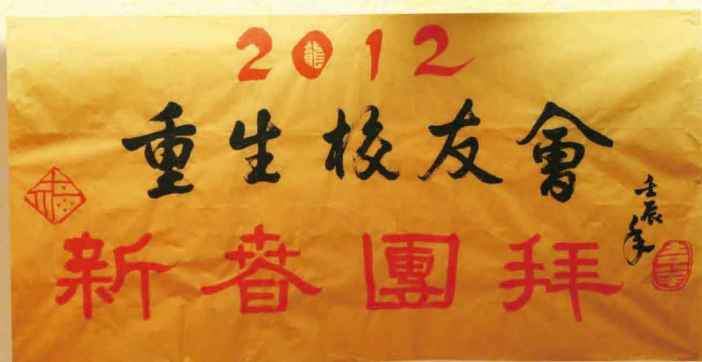 2012
龍
重生校友會
壬辰年
新春團拜